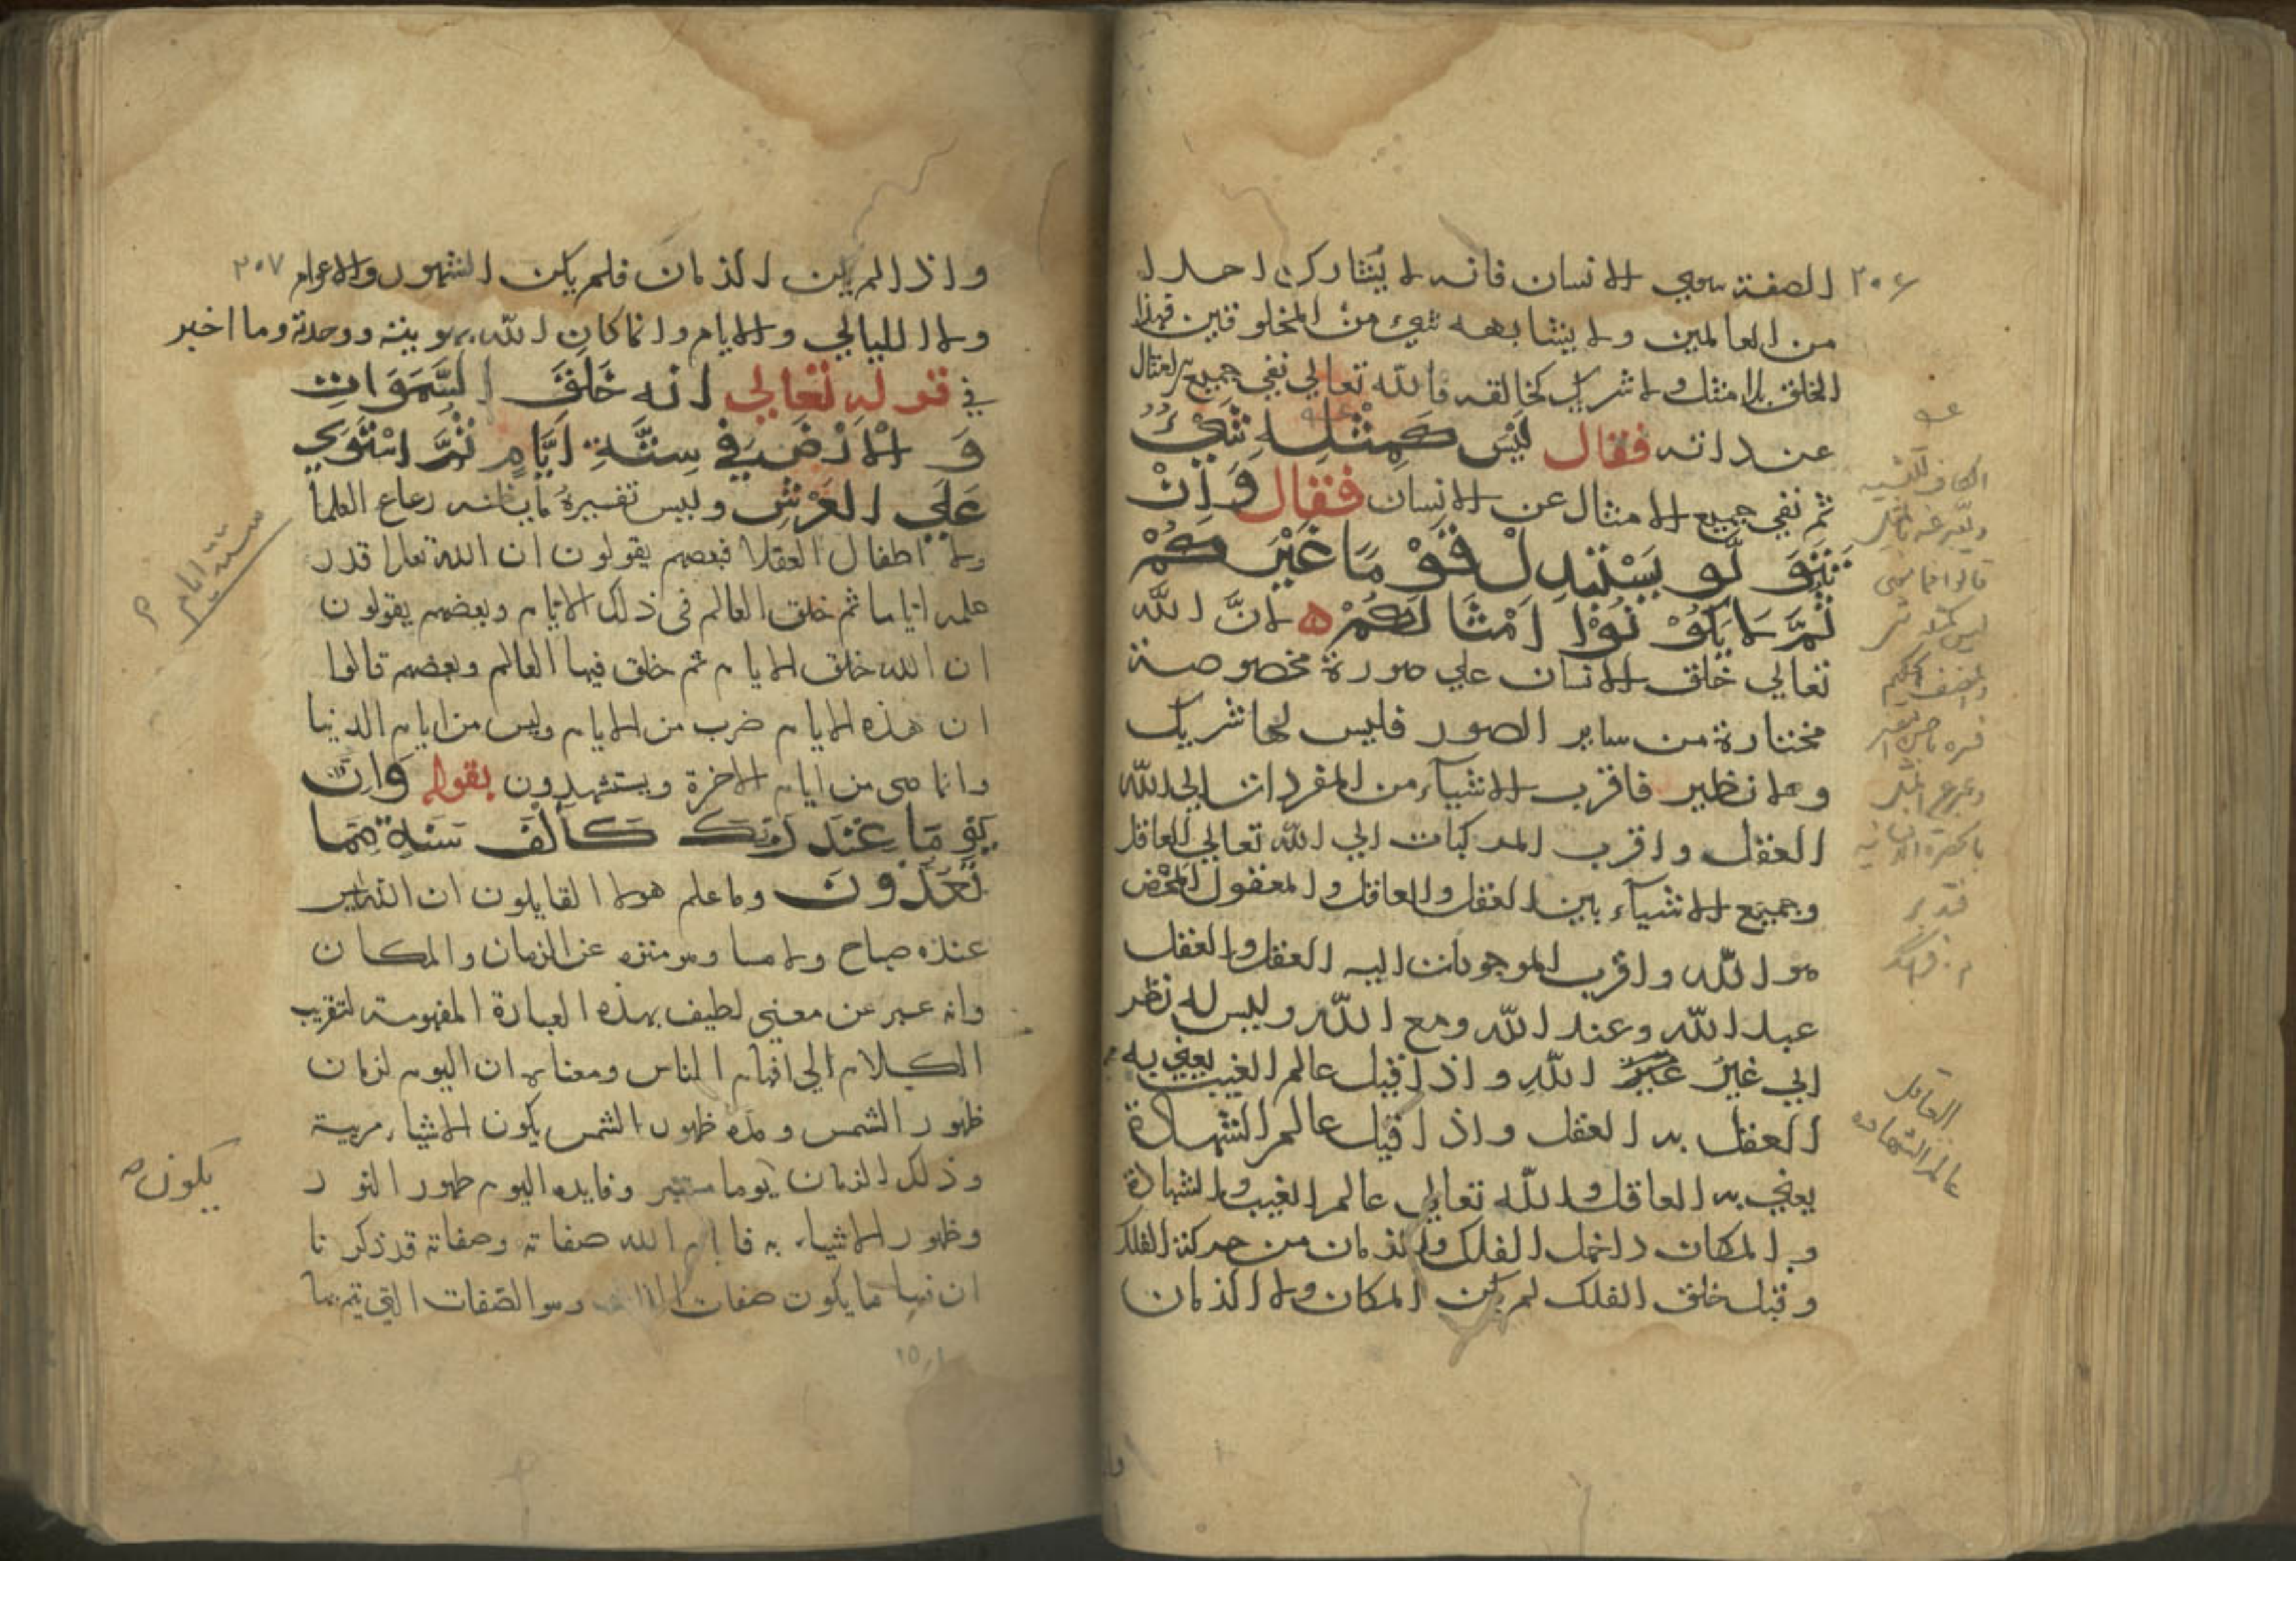 ٢٠٦
الصفة سوي الانسان فانه لا يشاركه احد
من العالمين ولا يشابهه شيء من المخلوقين فهذا
الخلق بلا مثل ولا شريك كخالقه فالله تعالي نفي جميع الامثال
عن ذاته فقال لَيْسَ كَمِثْلِهِ شَيْءٌ
ثم نفي جميع الامثال عن الانسان فقال وَاِنْ
تَتَوَلَّوْ يَسْتَبْدِلْ قَوْمَاً غَيْرَكُمْ
ثُمَّ لَا يَكُوْنُوْا اَمْثَالَكُمْ ه اِنَّ الله
تعالي خلق الانسان علي صورة مخصوصة
مختارة من ساير الصور فليس لها شريك
ولا نظير فاقرب الاشيآء من المفردات الي الله
العقل واقرب المركبات الي الله تعالي العاقل
وجميع الاشيآء بين العقل والعاقل والمعقول المحض
هو الله واقرب الموجودات اليه العقل والعقل
عبد الله وعند الله ومع الله وليس له نظر
الي غير الله واذا قيل عالم الغيب يعني به
العقل به العقل واذا قيل عالم الشهادة
يعني به العاقل والله تعالي عالم الغيب والشهادة
والمكان داخل الفلك والزمان من حركة الفلك
وقبل خلق الفلك لم يكن المكان ولا الزمان
العاقل
عالم الشهادة
٢٠٧
واذا لم يكن الزمان فلم يكن الشهور والاعوام
ولا الليالي والايام وانما كان الله بهويته ووحدته وما اخبر
في قوله تعالي انه خَلَقَ السَّمَوَاتِ
وَالْاَرْضَ فِي سِتَّةِ اَيَّامٍ ثُمَّ اسْتَوَي
عَلَي العَرْشِ وليس تفسيره ما يظنه رعاع العلما
ولا اطفال العقلا فبعضهم يقولون ان الله تعالى قدر
علمه اياما ثم خلق العالم في ذلك الايام وبعضهم يقولون
ان الله خلق الايام ثم خلق فيها العالم وبعضهم قالوا
ان هذه الايام ضرب من الايام وليس من ايام الدنيا
وانما هي من ايام الاخرة ويستشهدون بقوله وَاِنَّ
يَوْمَاً عِنْدَ رَبِّكَ كَاَلْفِ سَنَةٍ مِمَّا
تَعُدُّوْنَ وما علم هولا القايلون ان الله ليس
عنده صباح ولا مسا وهو منزه عن الزمان والمكان
وانه عبر عن معني لطيف بهذه العبارة المفهومة لتقريب
الكلام الي افهام الناس ومعناه ان اليوم لزمان
ظهور الشمس ومدة ظهور الشمس يكون الاشياء مرية
وذلك الزمان يوما وفايده اليوم ظهور النور
وظهور الاشياء به فايام الله صفاته وصفاته قد ذكرنا
ان فيها ما يكون صفات الذات وهو الصفات التي تم بها
ستة ايام
يكون